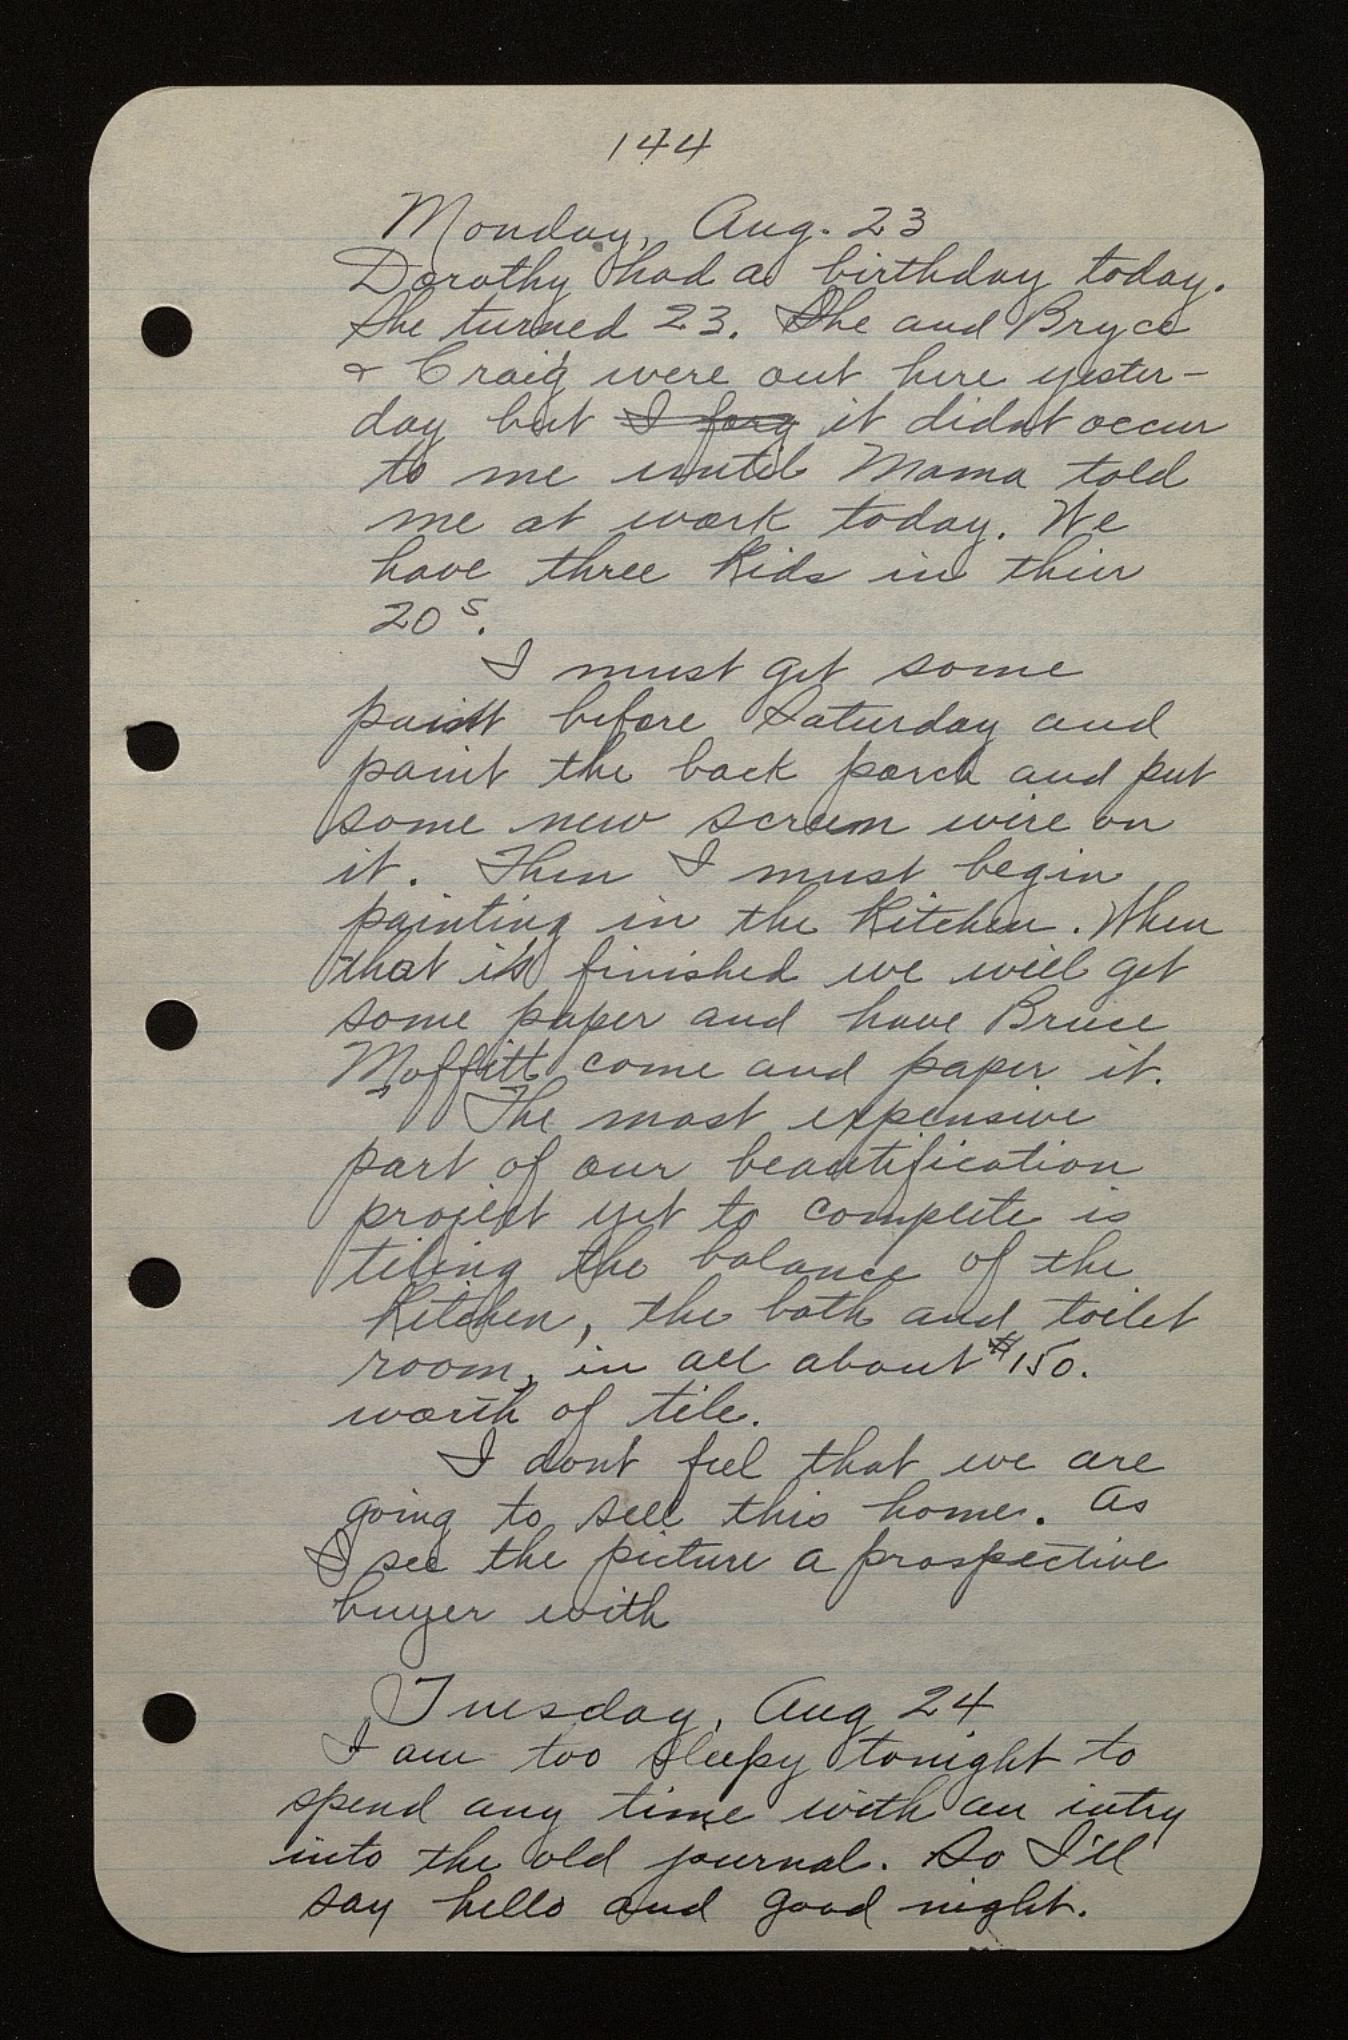 144
Monday, Aug. 23
Dorothy had a birthday today.
She turned 23. She and Bryce
& Craig were out here yester-
day but I forg it didnt occur
to me until Mama told
me at work today. We
have three kids in their
20s.
I must get some
paint before Saturday and
paint the back porch and put
some new screen wire on
it. Then I must begin
painting in the kitchen. When
that is finished we will get
some paper and have Bruce
Moffitt come and paper it.
The most expensive
part of our beautification
project yet to complete is
tiling the balance of the
kitchen, the bath and toilet
room, in all about $150.
worth of tile.
I dont feel that we are
going to sell this home. As
I see the picture a prospective
buyer with
Tuesday, Aug 24
I am too sleepy tonight to
spend any time with an intry
into the old journal. So I'll
say hello and good night.